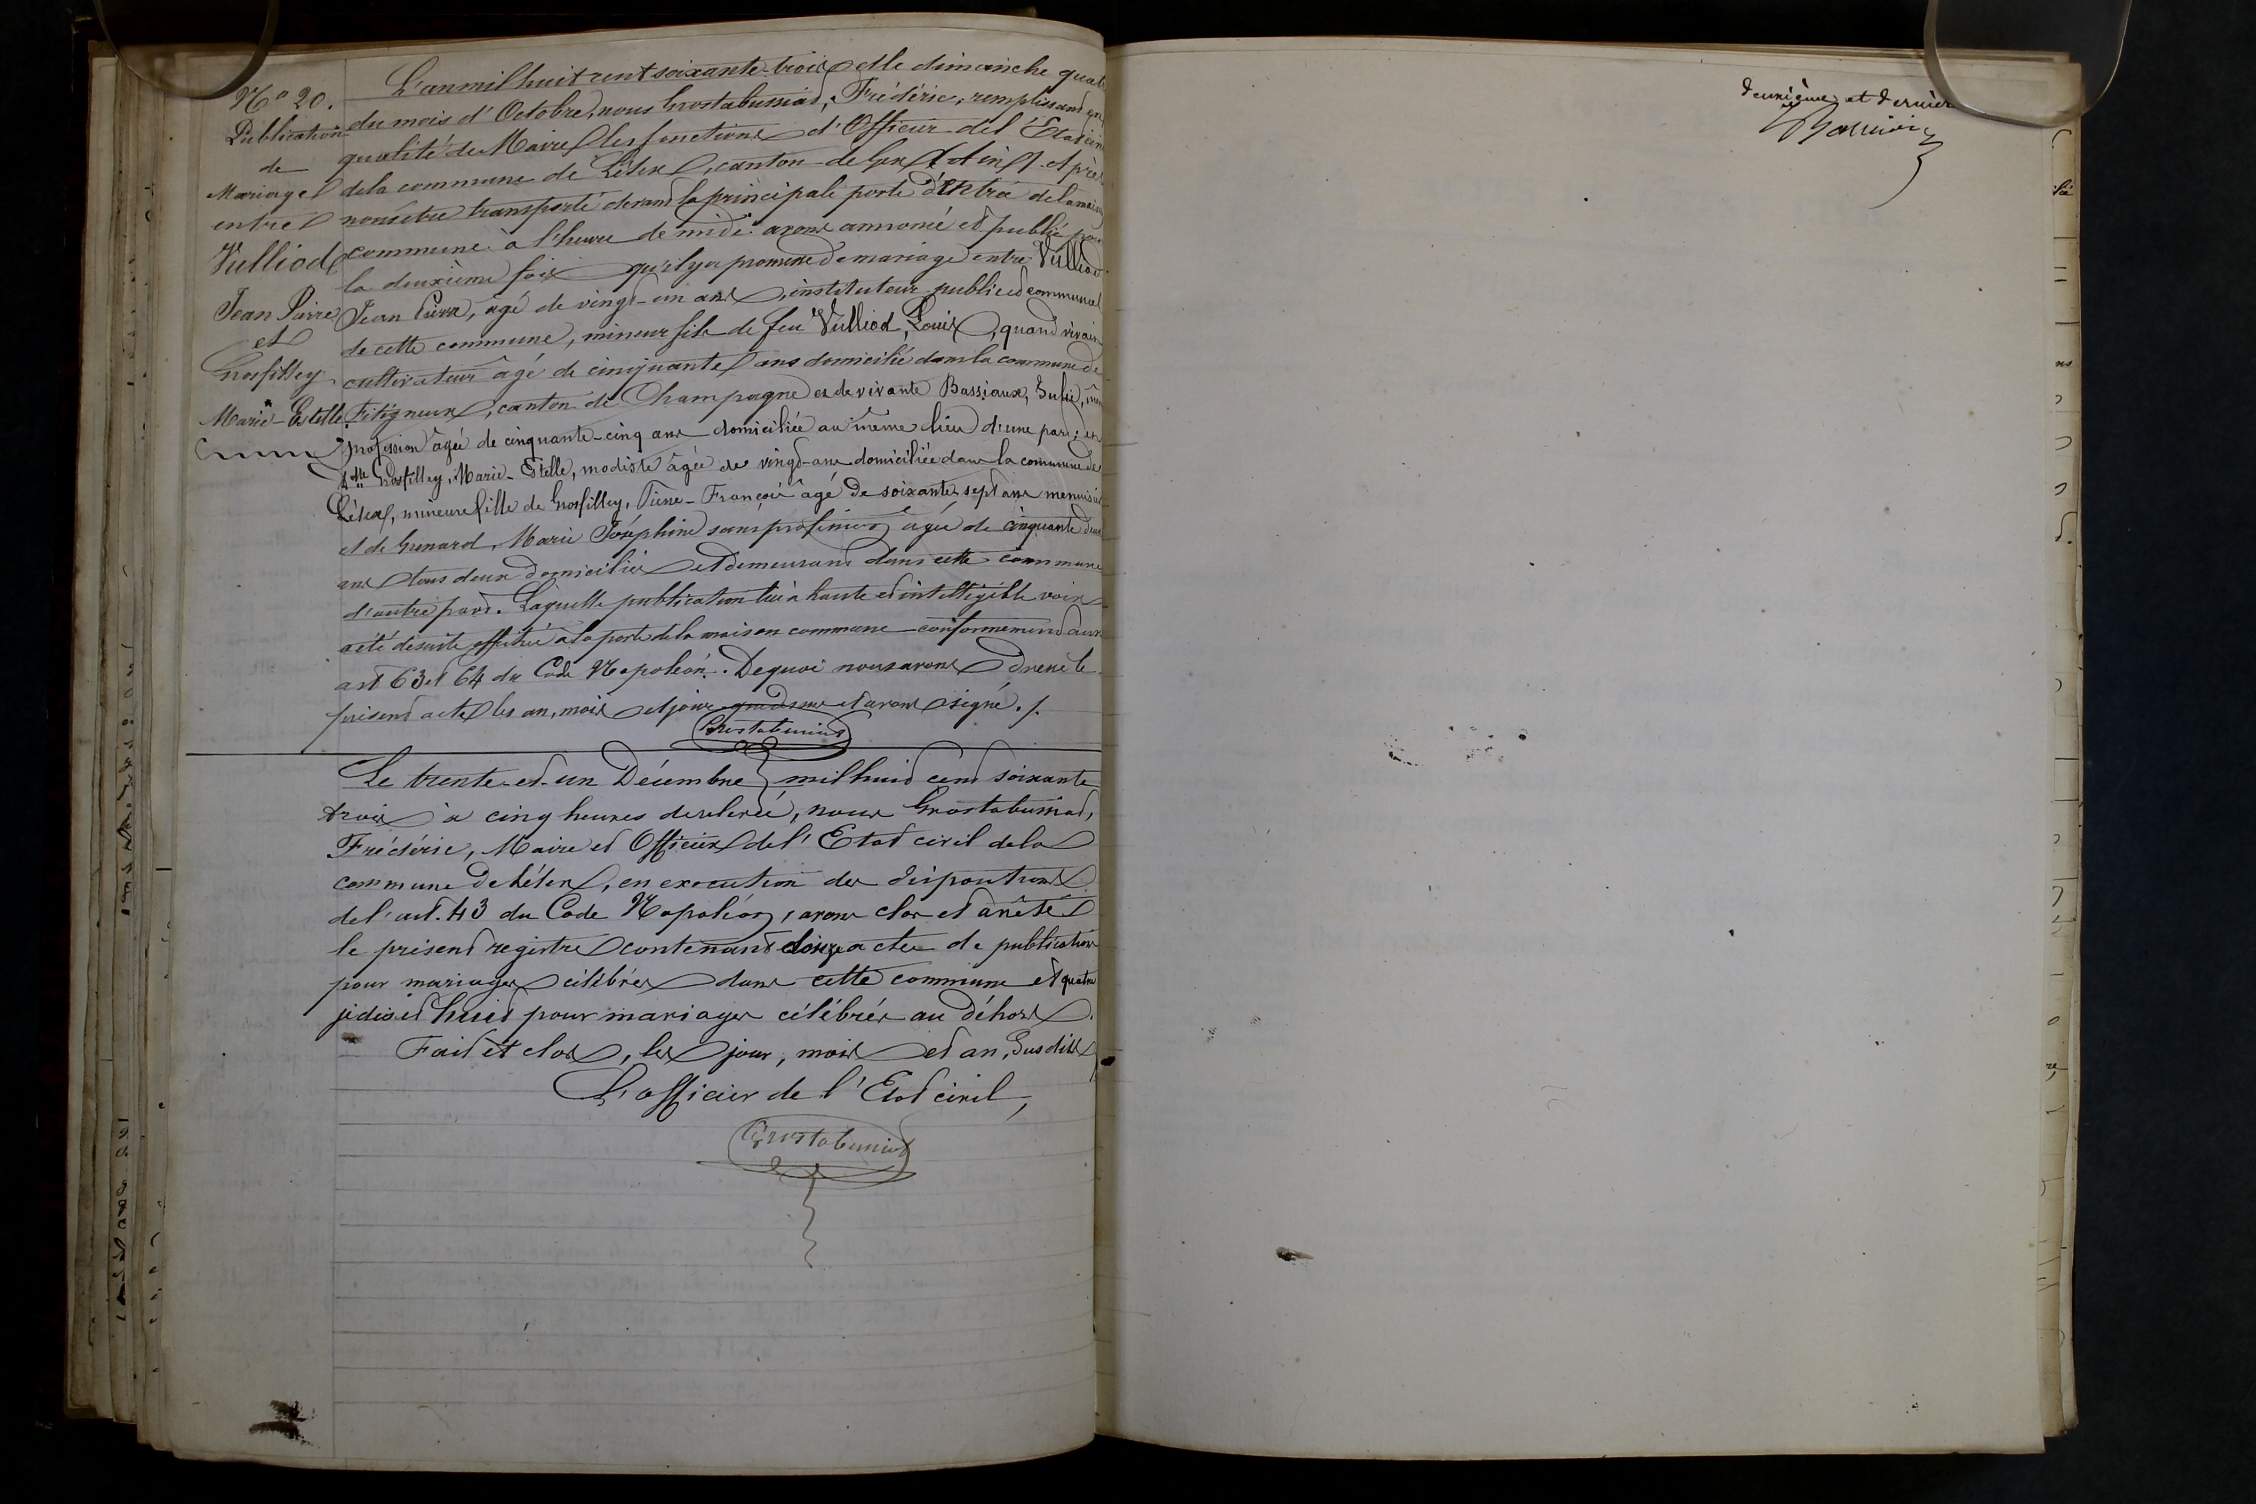 No 20.
Publication
de
Mariage
entre
Vulliod
Jean Pierre
et
Grosfilley
Marie-Estelle
L'an mil huit cent soixante-trois et le dimanche quatre
du mois d'Octobre, nous Grostabussiat, Frédéric, remplissant en
qualité de Maire les fonctions d'Officier de l'Etat civil
de la commune de Lélex, canton de Gex (Ain). Après
nous être transporté devant la principale porte d'entrée de la maison
commune à l'heure de midi avons annoncé et publié pour
la deuxième fois qu'il y a promesse de mariage entre Vulliod
Jean Pierre, âgé de vingt-un ans, instituteur public et communal
de cette commune, mineur fils de feu Vulliod, Louis, quand vivait
cultivateur âgé de cinquante ans domicilié dans la commune de
Fitigneux, canton de Champagne et de vivante Bassiaux, Julie, même
profession âgée de cinquante-cinq ans domiciliée au même lieu d'une part; et
dlle Grosfilley, Marie-Estelle, modiste âgée de vingt-ans domiciliée dans la commune de
Lélex, mineure fille de Grosfilley, Pierre-François âgé de soixante-sept ans menuisier
et de Grenard, Marie Joséphine sans profession âgée de cinquante deux
ans tous deux domiciliés et demeurant dans cette commune
d'autre part. Laquelle publication lue à haute et intelligible voix
a été de suite affichée à la porte de la maison commune conformément aux
art 63 et 64 du Code Napoléon. De quoi nous avons dressé le
présent acte les an, mois et jour que dessus et avons signé ./.
Grostabussiat
Le trente-et-un Décembre mil huit cent soixante
trois à cinq heures de relevée, nous Grostabussiat,
Frédéric, Maire et Officier de l'Etat civil de la
commune de Lélex, en execution des dispositions
de l'art. 43 du Code Napoléon, avons clos et arrêté
le présent registre contenant douze actes de publication
pour mariages célébrés dans cette commune et quatre
je dis et huit pour mariages célébrés au déhors.
Fait et clos, les jour, mois et an, susdits
L'officier de l'Etat civil,
Grostabussiat
deuxième et dernier